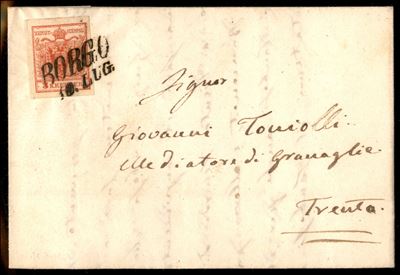 BORGO
10. LUG.
Signor
Giovanni Toniolli
Mediatore di Granaglie
Trento.